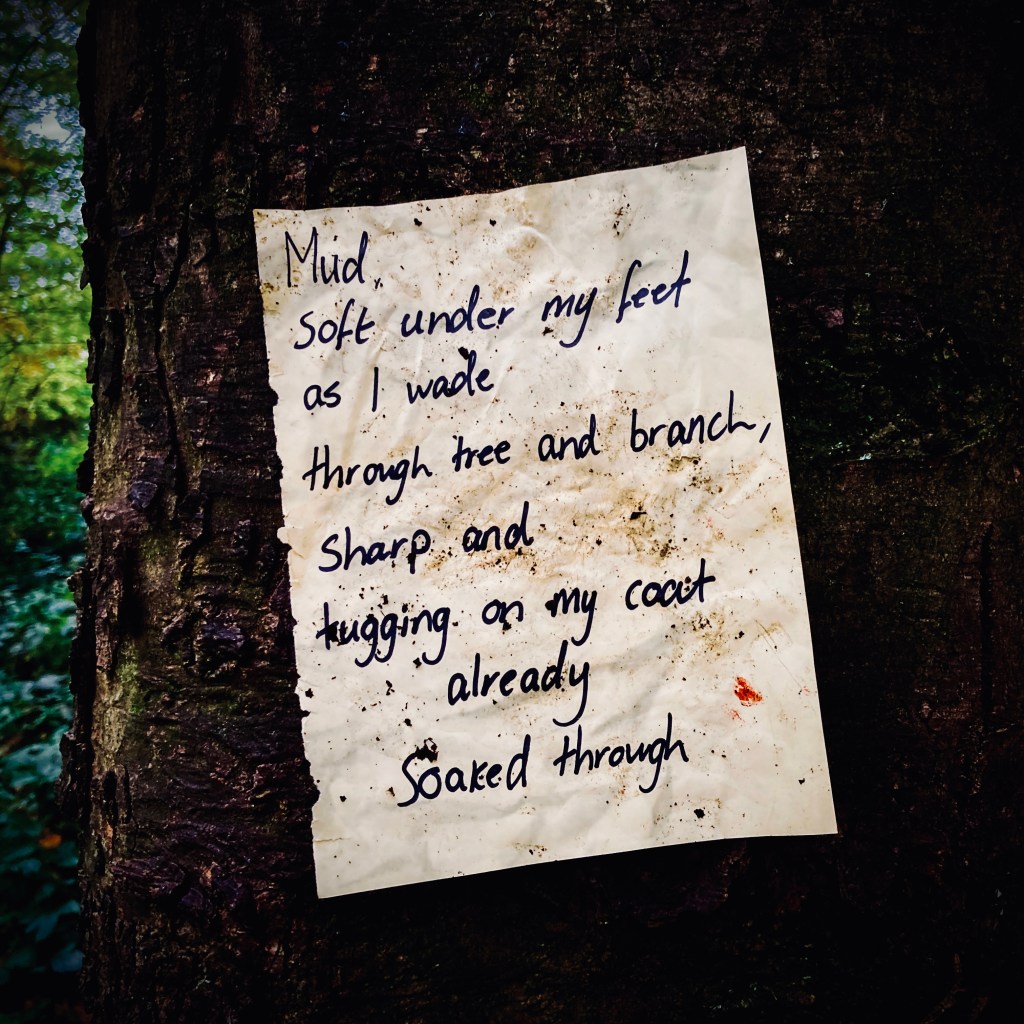 Mud,
Soft under my feet
as I wade
through tree and branch,
Sharp and
tugging on my coat
already
Soaked through